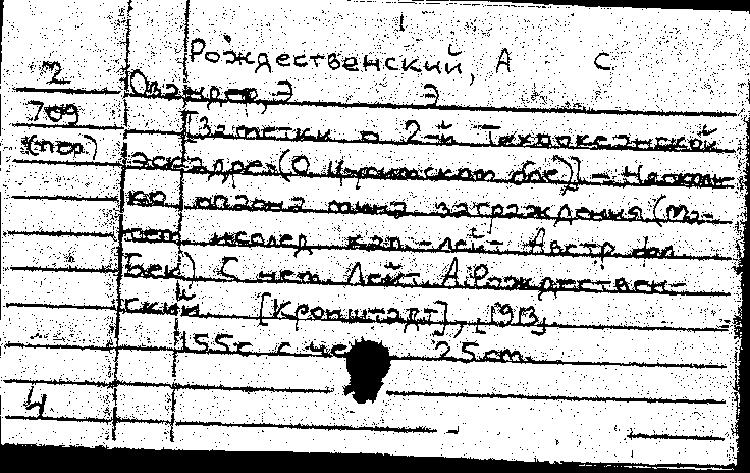 1
Рождественский, А С
2 Овандер, Э Э
709 [Заметки о 2-й Тихоокеанской
(пер) эскадре (О Цусимском бое)] – Несколь-
ко мина заграждения (
исслед кап.-лейт Австр фл
Бек) С нем. Лейт. А.Рождествен-
ский. [Кронштадт], [1913].
155 с с че 25 см.
4